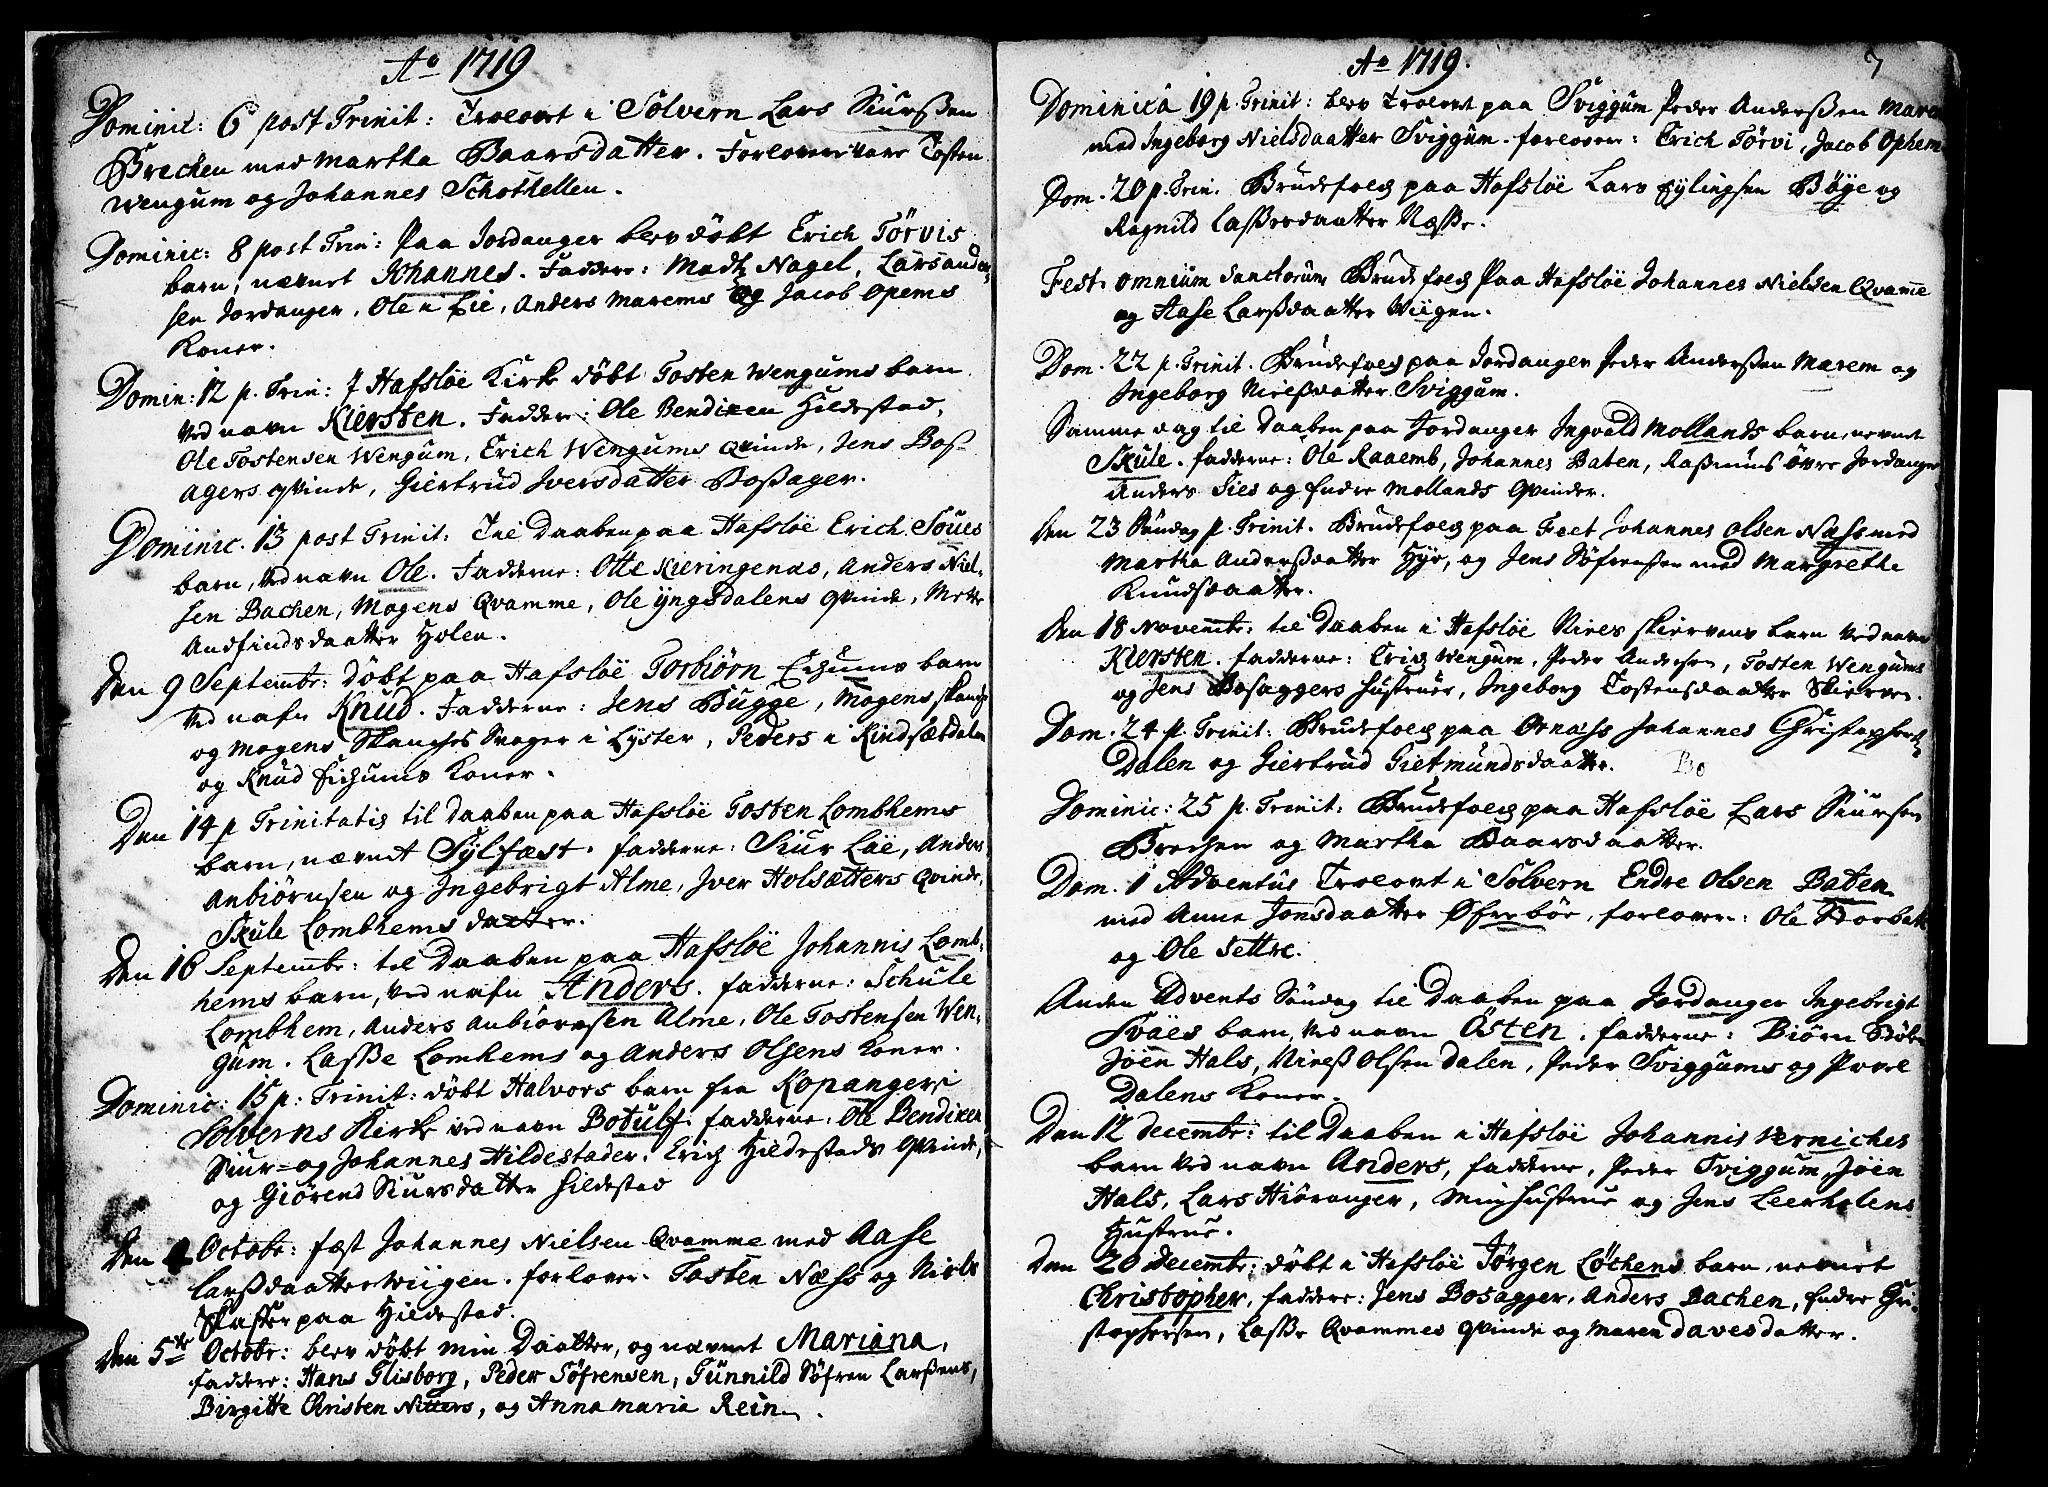 Ao 1719
Dominic: 6 post Trinit: Troloved i Solvern Lars Siurßen
Brechen med Martha Baarsdatter. Forlovere vare Tosten
Wengum og Johannes Schothellen.
Dominic: 8 post Trin: Paa Jordanger blev döbt Erich Törvis
barn, nævnet Johannes. Faddere: Madtz Nagel, Lars ander-
sen Jordanger, Ole i Lie, Anders Marems og Jacob Opems
Koner.
Domin: 12 p. Trin: I Hafslöe Kirke döbt Tosten Wengums barn
ved navn Kiersten. Faddere: Ole Bendixen Hildestad,
Ole Tostensen Wengum, Erich Wengums qvinde, Jens Boß-
agers qvinde, Giertrud Iversdatter Boßager.
Dominic. 13 post Trinit: Til Daaben paa Hafslöe Erich Söues
barn, ved navn Ole. Fadderne: Otte Kieringenas, Anders Niel-
sen Bachen, Mogens Qvamme, Ole yngsdalens qvinde, Mette
Andfindsdaatter Holen.
Den 9 Septembr: döbt paa Hafslöe Torbiörn Eichums barn
ved nafn Knud. Fadderne: Jens Bugge, Mogens Skange
og Mogens Skanches Svoger i Lyster, Peders i Kindsætdalen
og Knud Eichums Koner.
Den 14 p Trinitatis til daaben paa Hafslöe Tosten Lombhems
barn, nævnet Sylfæst. fadderne: Siur Löe, Anders
Anbiörnsen og Ingebrigt Alme, Iver Holsætters qvinde,
Skule Lombhems daatter.
Den 16 Septembr: til Daaben paa Hafslöe Johannis Lomb-
hems barn, ved nafn Anders. fadderne: Schule
Lombhem, Anders Anbiörnsen Alme, Ole Tostensen Wen-
gum. Laße Lomhems og Anders Olsens Koner.
Dominic: 15 p: Trinit: döbt Halvors barn fra Kopanger i
Solverns Kirke ved navn Botulf. fadderne: Ole Bendixen
Siur= og Johannes Hildestader. Erich Hildestads Qvinde,
og Giörend Siursdatter Hildestad
Den 4 Octobr: fæst Johannes Nielsen Qvamme med Aase
Larßdaatter Wiigen. forlover. Tosten Næss og Niels
paa Hildestad.
Den 5te Octobr: blev döbt min Daatter, og nævnet Mariana,
faddere: Hans Glisborg, Peder Söfrensen, Gunnild Söfren Larßens,
Birgitte Christen Nitters, og Anna Maria Rein.
Ao 1719. 7
Dominica 19 p. Trinit: blev Troloved paa Sviggum Peder Anderßen Marem
med Ingeborg Nielsdaatter Sviggum. forlovere: Erich Törvi, Jacob Ophem
Dom. 20 p. Trin. Brudefolck paa Hafslöe Lars Eylingsen Böye og
Ragnild Laßesdaatter Næße.
Fest: omnium Sanctorum Brudefolck Paa Hafslöe Johannes Nielsen Qvamme
og Aase Larßdaatter Wiigen.
Dom. 22 p. Trinit. Brudefolck paa Jordanger Peder Anderßen Marem og
Ingeborg Nielßdatter Sviggum.
Samme dag til Daaben paa Jordanger Ingvald Mollands barn, nevnet
Skule. fadderne: Ole Raaemb, Johannes Baten, Raßmus övre Jordanger
Anders Sies og Endre Mollands qvinder.
Den 23 Söndag p. Trinit. Brudefolck paa Feet Johannes Olsen Næss med
Martha Anderßdaatter Hye, og Jens Söfrensen med Margrethe
Knudsdaatter.
Den 18 Novembr: til Daaben i Hafslöe Niels Skiervens barn ved navn
Kiersten. fadderne: Erich Wengum, Peder Andersen, Tosten Wengums
og Jens Bosaggers Hustruer, Ingeborg Tostensdaatter Skierven.
Dom. 24 p. Trinit: Brudefolck paa Ornæss Johannes Christophersen
Dalen og Giertrud Gietmundsdaatter.
Dominic: 25 p. Trinit: Brudefolck paa Hafslöe Lars Siursen
Brechen og Martha Baarsdaatter.
Dom. 1 Adventus Troloved i Solvern Endre Olsen Baten
med Anne Jonsdaatter Øfrebör, forlovere: Ole
og Ole Settre.
Anden Advents Söndag til Daaben paa Jordanger Ingebrigt
Svaes barn, ved navn Östen. fadderne: Biörn
Jöen Hals, Nielß Olsen Dalen, Peder Sviggums og Povel
Dalens Koner.
Den 12 decembr: til Daaben i Hafslöe Johannis Verniches
barn ved navn Anders, fadderne, Peder Sviggum, Jöen
Hals, Lars Hiöranger, Min Hustrue og Jens Leerholens
Hustrue.
Den 20 decembr: döbt i Hafslöe Jörgen Löchens barn, nevnet
Christopher, faddere: Jens Bosagger, Anders Bachen, Endre Chri-
stophersen, Laße Qvammes qvinde og Maren Davesdatter.